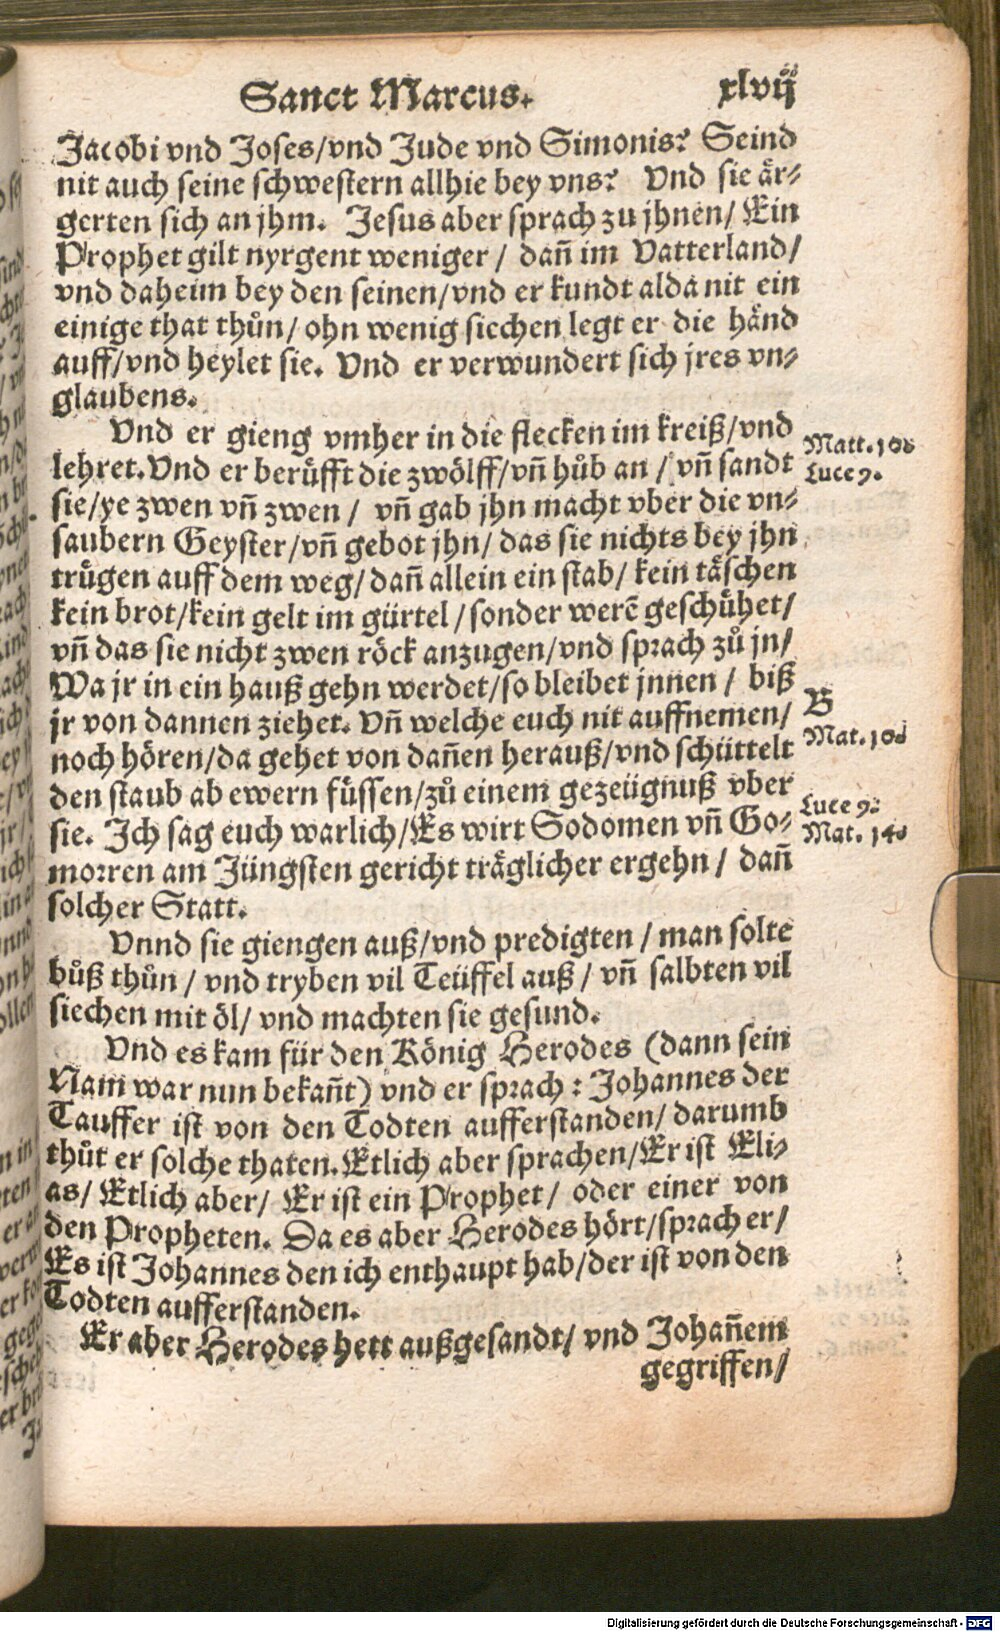 Sanct Marcus.
xlvij
Jacobi vnd Joses/vnd Jude vnd Simonis? Seind
nit auch seine schwestern allhie bey vns? Vnd sie är⸗
gerten sich an jhm. Jesus aber sprach zu jhnen/ Ein
Prophet gilt nyrgent weniger / dañ im Vatterland/
vnd daheim bey den seinen/vnd er kundt alda nit ein
einige that thůn/ ohn wenig siechen legt er die händ
auff/vnd heylet sie. Vnd er verwundert sich jres vn⸗
glaubens.
Vnd er gieng vmher in die flecken im kreiß/vnd
Matt.10.
lehret. Vnd er berüfft die zwölff/vñ hůb an / vñ sandt
Luce 9.
sie/ye zwen vñ zwen / vñ gab jhn macht vber die vn⸗
saubern Geyster/vñ gebot jhn/ das sie nichts bey jhn
trügen auff dem weg/ dañ allein ein stab/ kein täschen
kein brot/kein gelt im gürtel / sonder werẽ geschühet/
vñ das sie nicht zwen röck anzugen/vnd sprach zů jn/
Wa jr in ein hauß gehn werdet/so bleibet jnnen / biß
B
jr von dannen ziehet. Vñ welche euch nit auffnemen/
Mat.10.
noch hören/da gehet von dañen herauß/vnd schüttelt
den staub ab ewern füssen/zů einem gezeügnuß vber
Luce 9.
sie. Ich sag euch warlich/Es wirt Sodomen vñ Go⸗
Mat. 14.
morren am Jüngsten gericht träglicher ergehn / dañ
solcher Statt.
Vnnd sie giengen auß/vnd predigten / man solte
bůß thůn / vnd tryben vil Teüffel auß / vñ salbten vil
siechen mit öl/ vnd machten sie gesund.
Vnd es kam für den König Herodes (dann sein
Nam war nun bekañt) vnd er sprach : Johannes der
Tauffer ist von den Todten aufferstanden/ darumb
thůt er solche thaten. Etlich aber sprachen/Er ist Eli⸗
as/ Etlich aber/ Er ist ein Prophet/ oder einer von
den Propheten. Da es aber Herodes hört/sprach er/
Es ist Johannes den ich enthaupt hab/der ist von den
Todten aufferstanden.
Er aber Herodes hett außgesandt/ vnd Johañem
gegriffen/
Digitalisierung gefördert durch die Deutsche Forschungsgemeinschaft - DFG